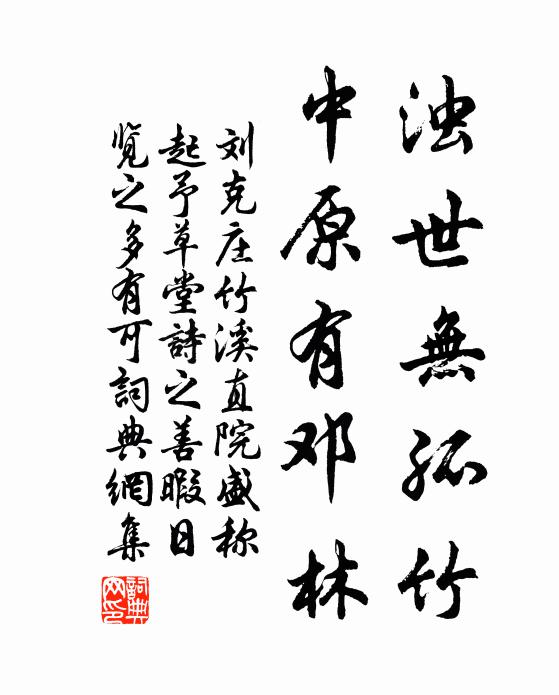 浊世無孤竹
中原有邓林
刘克庄竹溪直院盛称
起予草堂詩之善暇日
覧之多有可詞典網集
詞典網印